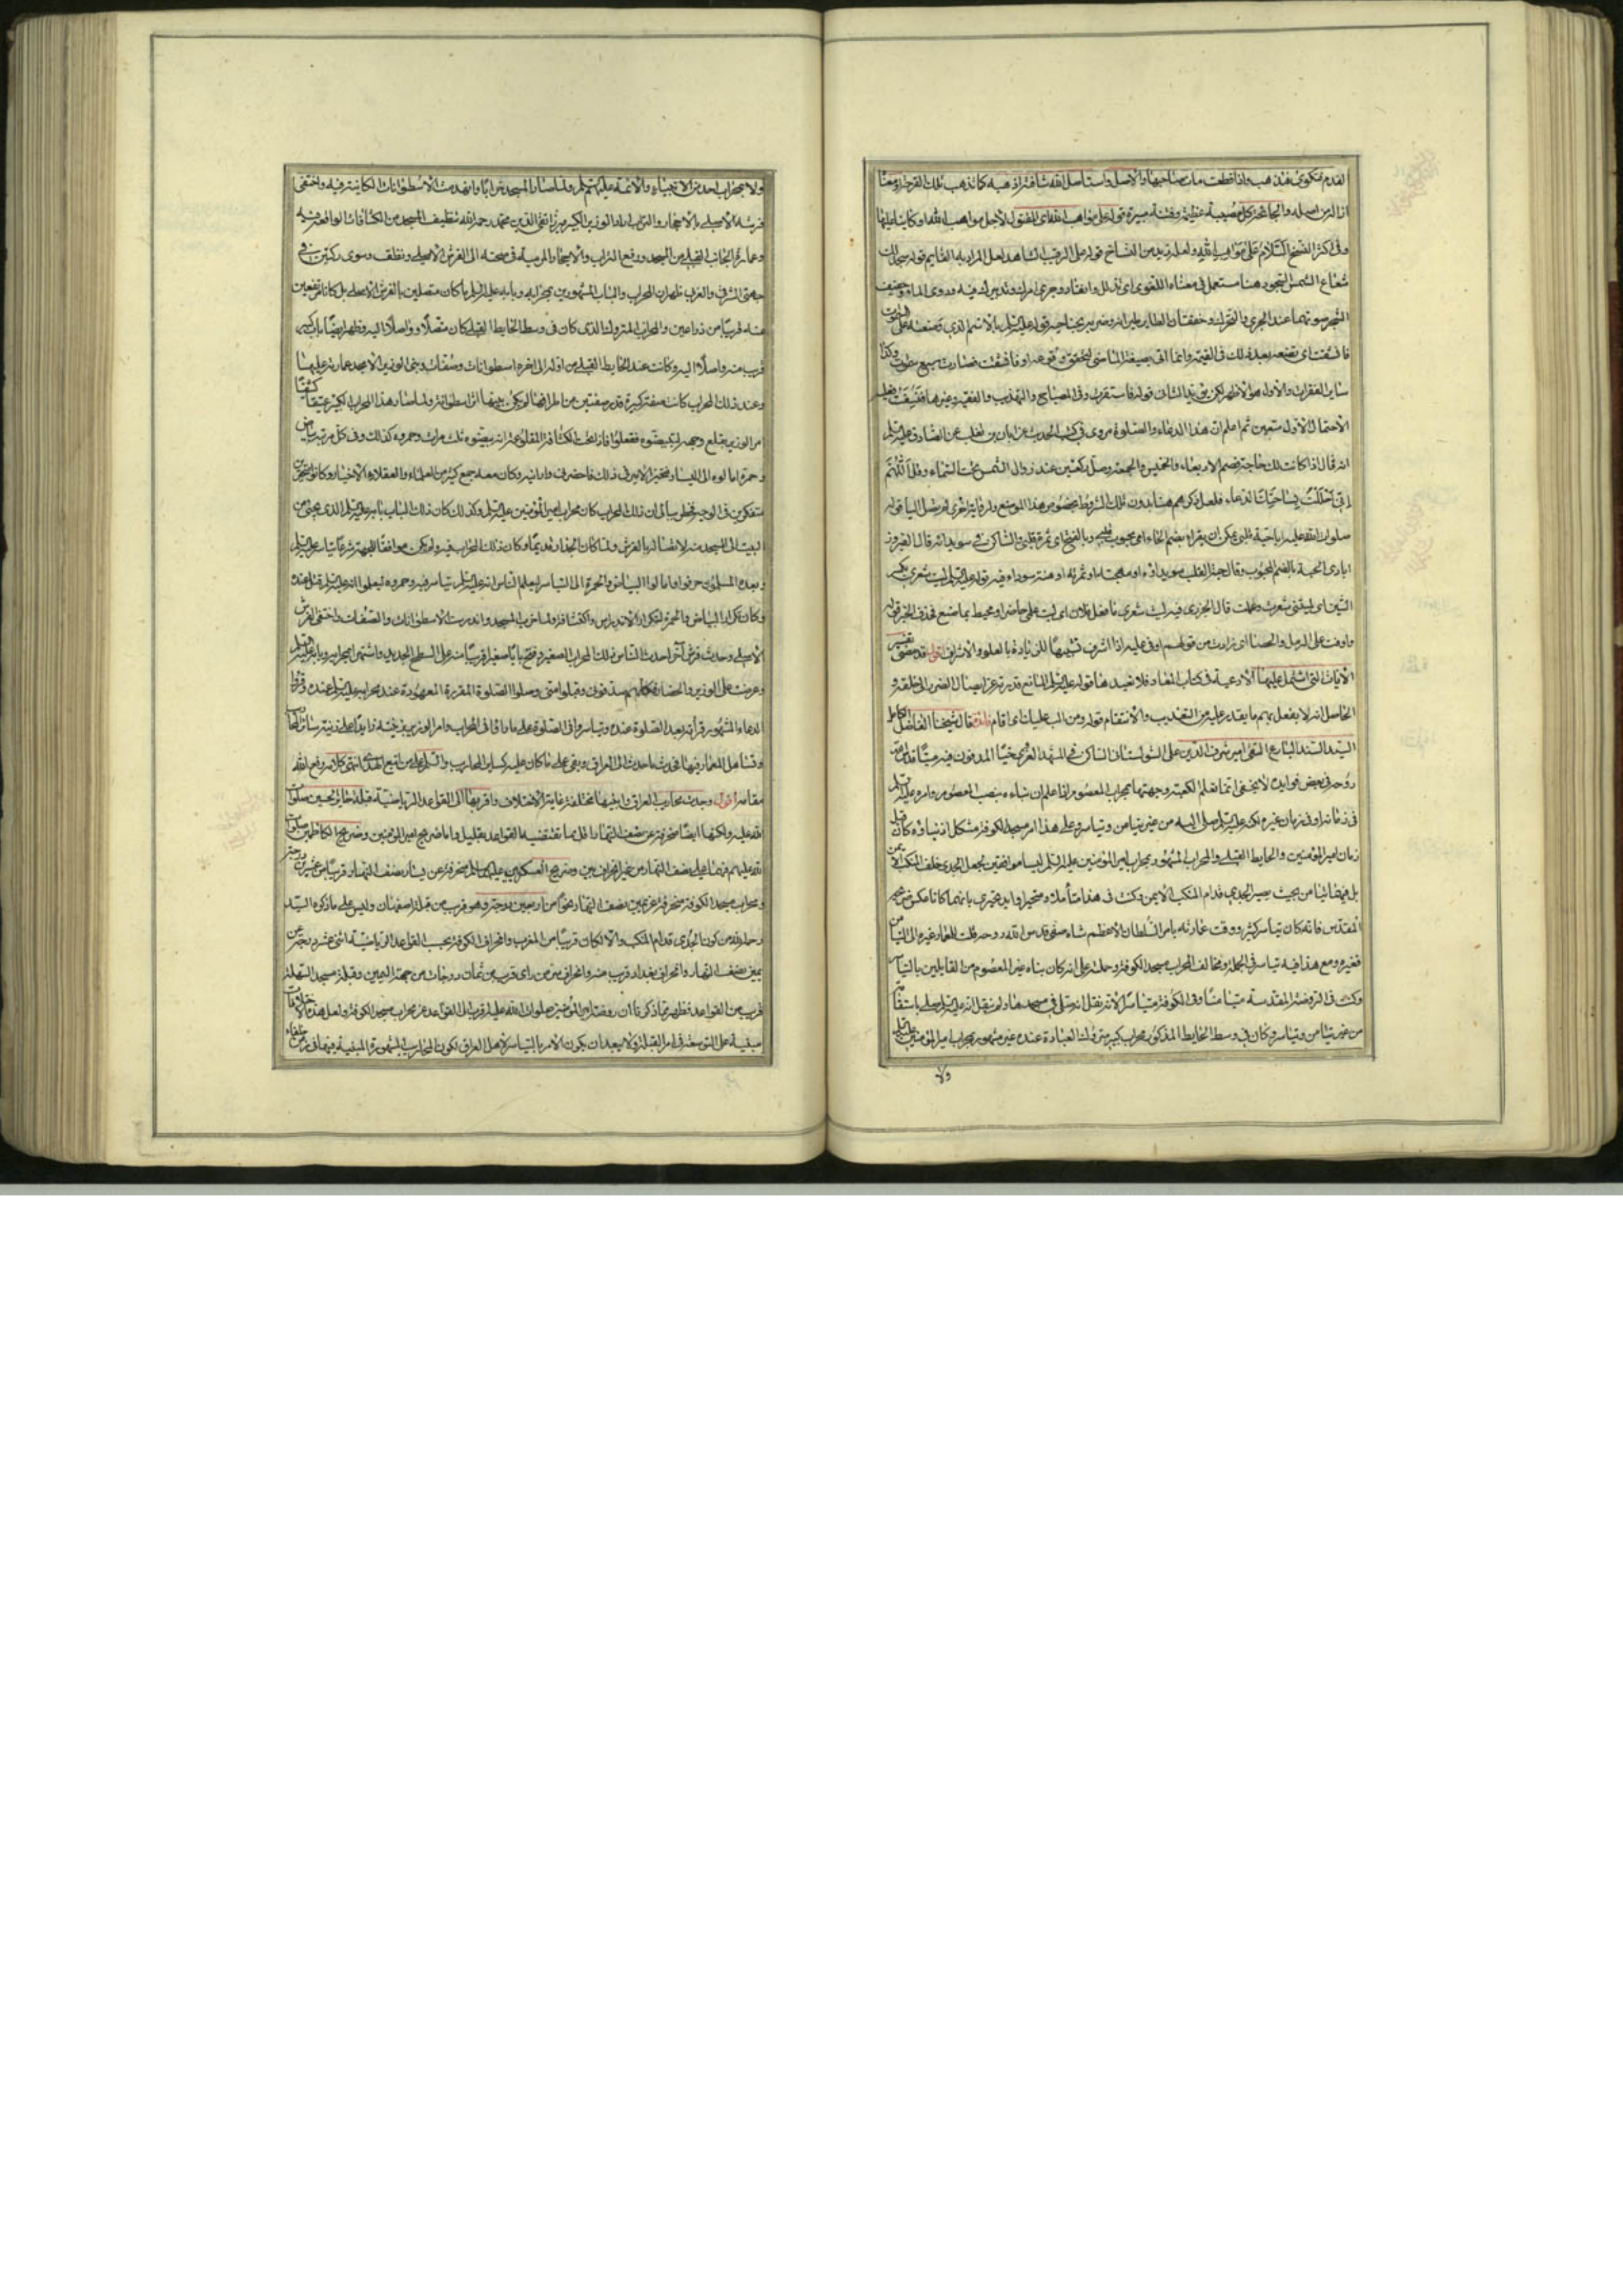 القدم فتكوى فتذهب واذا قطعت مات صاحبها والاصل واستاصل الله شافته اذهبه كما تذهب تلك القرحة او معناه
ازاله من اصله والجائحة كل مصيبة عظيمة وفتنة مبيرة قوله على مواهب الله اى المقتول لاجل مواهب الله او كاينا عليها
وفى اكثر النسخ السلام على مواهب الله ولعله زيد من النساخ قوله على الرقيب الشاهد لعل المراد به القايم قوله سجدلت
شعاع الشمس السجود هنا مستعمل فى معناه اللغوى اى تذلل وانقاد وجرى امرك وتدبيرك فيه ودوى الماء وحفيف
الشجر صوتهما عند الجرى والتحرك وخفقان الطاير طيرانه وضربه بجناحيه قوله عليه السلام بالاسم الذى وضعته على السموات
فانشقت اى تضعه بعد ذلك فى القيمة وانما اتى بصيغة الماضى لتحقق وقوعه او فانشقت فصارت سبع سموات وكذا
ساير الفقرات والاول هو الاظهر لكن يؤيد الثانى قوله فاستقرت وفى المصباح والتهذيب والفقيه وغيرها فنسفت فعلى
الاحتمال الاول متعين ثم اعلم ان هذا الدعاء والصلوة مروى فى كتب الحديث عن ابان بن تغلب عن الصادق عليه السلم
انه قال اذا كانت لك حاجة فصم الاربعاء والخميس والجمعة وصل ركعتين عند زوال الشمس تحت السماء وقل اللهم
انى حللت بساحتك الدعاء فلعل ذكرهم هنا بدون تلك الشروط بخصوص هذا الموضع ولرواية اخرى لم تصل الينا قوله
صلوات الله عليه يا حبة قلبى يمكن ان يقراء بضم الحاء اى محبوب قلبى وبالفتح اى ثمرة قلبى والساكن فى سويدائه قال الفيروز
ابادى الحبة بالضم المحبوب وقال حبة القلب سويداؤه او مهجته او ثمرته او هنة سوداء فيه قوله عليه السلم ليت شعرى بكسر
الشين اى ليتنى شعرت وعلمت قال الجزرى فيه ليت شعرى ما فعل فلان اى ليت علمى حاضر او محيط بما صنع فحذف الخبر قوله
واوفت على الرمل والحصا اى زادت من قولهم اوفى عليه اذا اشرف تشبيها للزيادة بالعلو والاشراف اقول قد مضى تفسير
الآيات التى اشتمل عليها الادعية فى كتاب المعاد فلا نعيد هنا قوله عليه السلم المانع قدرته عن ايصال الضرر الى خلقه و
الحاصل انه لا يفعل بهم ما يقدر عليه من التعذيب والانتقام قوله ومن الب عليك اى اقام فائدة قال شيخنا الفاضل الكامل
السيد السند البارع التقى امير شرف الدين على الشولستانى الساكن فى المشهد الغرى حيا المدفون فيه ميتا قدس الله
روحه فى بعض فوايده لا يخفى انما نعلم الكعبة وجهتها بمحراب المعصوم اذا علم ان بناءه بنصب المعصوم وامره عليه السلم
فى زمانه او فى زمان غيره لكنه عليه السلم صلى اليه من غير تيامن وتياسر وعلى هذا امر مسجد الكوفة مشكل اذ بناؤه كان قبل
زمان امير المؤمنين والحايط القبلى والمحراب المشهور بمحراب امير المؤمنين عليه السلم ليسا موافقين لجعل الجدى خلف المنكب الايمن
بل فيهما تيامن بحيث يصير الجدى قدام المنكب الايمن وكنت فى هذا متاملا ومتحيرا وايد تحيرى بانهما كانا عكس ضريحه
المقدس فانه كان تياسر كثير ووقت عمارته بامر السلطان الاعظم شاه صفى قدس الله روحه قلت للمعمار غيره الى التيامن
فغيره ومع هذا فيه تياسر فى الجملة ومخالف لمحراب مسجد الكوفة وحملته على انه كان بناه غير المعصوم من القايلين بالتياسر
وكنت فى الروضة المقدسة متيامنا وفى الكوفة متياسرا لانه نقل انه صلى فى مسجدها ولم ينقل انه عليه السلم صلى باستقامته
من غير تيامن وتياسر وكان فى وسط الحايط المذكور محراب كبير متروك العبادة عنده غير مشهور بمحراب امير المؤمنين عليه السلم
ولا
ولا بمحراب احد من الانبياء والائمة عليهم السلم ولما صار المسجد خرابا وانهدمت الاسطوانات الكاينة فيه واختفى
فرشه الاصلى بالاحجار والتراب اراد الوزير الكبير ميرزا تقى الدين محمد رحمه الله تنظيف المسجد من الكثافات الواقعة فيه
وعمارة الجانب القبلى من المسجد ورفع التراب والاحجار المرمية فى صحنه الى الفرش الاصلى ونظف وسوى دكتين فى
جهتى الشرق والغرب ظهر ان المحراب والباب المشهورين بمحرابه وبابه عليه السلم ما كان متصلين بالفرش الاصلى بل كانا مرتفعين
عنه قريبا من ذراعين والمحراب المتروك الذى كان فى وسط الحايط القبلى كان متصلا وواصلا اليه وظهر ايضا باب كبير
قريب منه واصلا اليه وكانت عند الحايط القبلى من اوله الى اخره اسطوانات وصفات وبنى الوزير الامجد عمارته عليها
وعند ذلك المحراب كانت صفة كبيرة قدر صفتين من اطرافها لم يكن بينها اثر اسطوانة ولما صار هذا المحراب الكبير عتيقا كثيفا
امر الوزير بقلع وجهه ليبيضوه ففعلوا فاذا تحت الكثافة المقلوعة انه بيضوه ثلث مرات وحمروه كذلك وفى كل مرتبة بياض
وحمرة امالوه الى اليسار فتحير الامير فى ذلك فاحضرنى وارانيه وكان معه جمع كثير من العلماء والعقلاء الاخيار وكانوا متحيرين
متفكرين فى الوجه فخطر ببالى ان ذلك المحراب كان محراب امير المؤمنين عليه السلم وكذلك كان ذلك الباب بابه عليه السلم الذى يجىء من
البيت الى المسجد منه لاتصاله بالفرش ولما كان الجدار قديما وكان ذلك المحراب فيه ولم يكن موافقا للجهة شرعا تياسر عليه السلم
وبعده المسلمون حرفوا وامالوا البياض والحمرة الى التياسر ليعلم الناس انه عليه السلم تياسر فيه وحمروه ليعلموا انه عليه السلم قتل عنده
وكان تكرار البياض والحمرة لتكرار الاندراس والكثافة ولما خرب المسجد واندرست الاسطوانات والصفات واختفى الفرش
الاصلى وحدث فرش آخر احدث الناس ذلك المحراب الصغير وفتح بابا صغيرا قريبا منه على السطح الجديد واشتهر بمحرابه وبابه عليه السلم
وعرضت على الوزير والحضار فكلهم صدقونى وقبلوا منى وصلوا الصلوة المقررة المعهودة عند محرابه عليه السلم عنده وقرؤا
الدعاء المشهور قرأته بعد الصلوة عنده وتياسروا فى الصلوة على ما راوا فى المحراب وامر الوزير بزينته زايدا على زينة ساير المحاريب
وتساهل المعمار فيها فحدث ما حدث الى العراق وبقى على ما كان عليه كساير المحاريب والسلام على من اتبع الهدى انتهى كلامه رفع الله
مقامه اقول وجدت محاريب العراق وابنيها مختلفة غاية الاختلاف واقربها الى القواعد الرياضية قبلة حاير الحسين صلوات
الله عليه ولكنها ايضا منحرفة عن نصف النهار اقل مما تقتضيه القواعد بقليل واما ضريح امير المؤمنين وضريح الكاظمين صلوات
الله عليهم فهما على نصف النهار من غير انحراف بين وضريح العسكريين عليهما السلم منحرفة عن يسار نصف النهار قريبا من عشرين درجة
ومحراب مسجد الكوفة منحرفة عن يمين نصف النهار نحوا من اربعين درجة وهو قريب من قبلة اصفهان وليس على ما ذكره السيد
رحمه الله من كون الجدى قدام المنكب والا لكان قريبا من المغرب وانحراف الكوفة بحسب القواعد الرياضية اثنى عشرة درجة عن
يمين نصف النهار وانحراف بغداد قريب منه وانحراف سر من راى قريب من ثمان درجات من جهة اليمين وقبلة مسجد السهلة
قريب من القواعد فظهر مما ذكرنا ان روضة امير المؤمنين صلوات الله عليه اقرب الى القواعد من محراب مسجد الكوفة ولعل هذه الاختلافات
مبنية على التوسعة فى امر القبلة ولا يبعد ان يكون الامر بالتياسر لاهل العراق لكون المحاريب المشهورة المبنية فيها فى زمن خلفاء